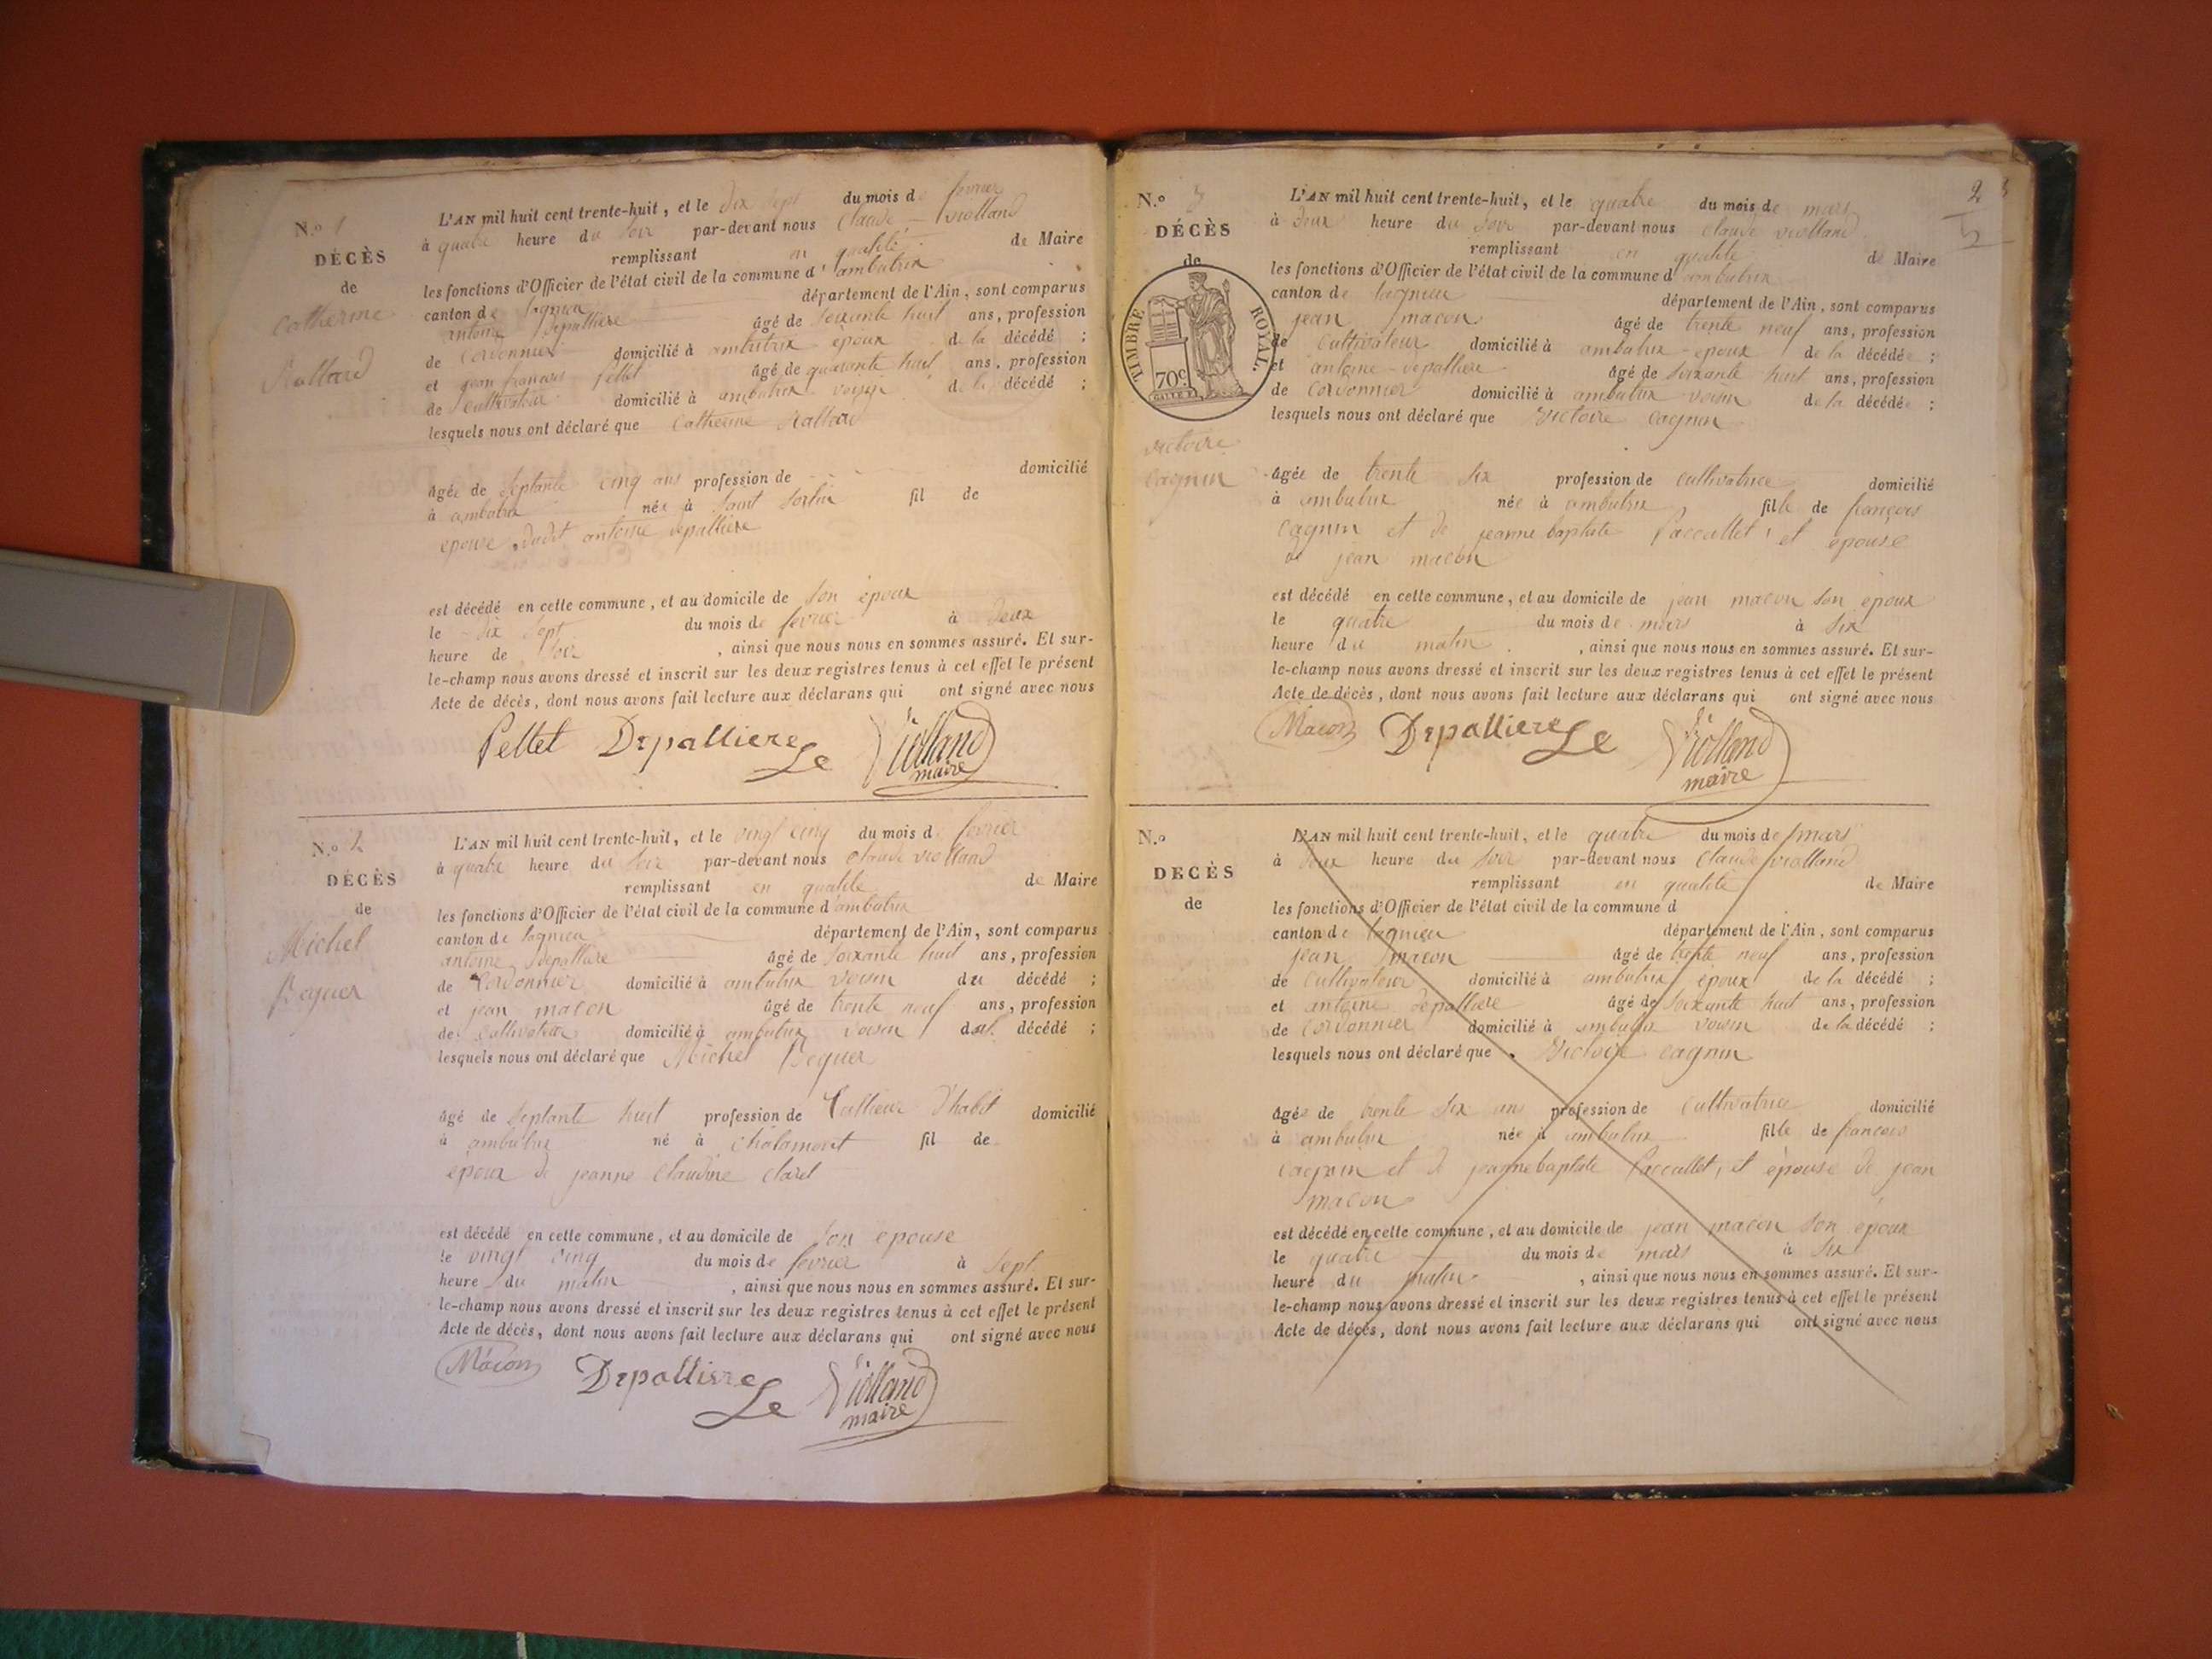 N.o 1
DÉCÈS
de
Catherine
Rallard
L'AN mil huit cent trente-huit, et le dix sept du mois de fevrier
à quatre heure du soir par-devant nous Claude violland
remplissant en qualité de Maire
les fonctions d'Officier de l'état civil de la commune d'ambutrix
canton de lagnieu département de l'Ain, sont comparus
antoine depalliere âgé de soixante huit ans, profession
de Cordonnier domicilié à ambutrix époux de la décédé ;
et jean françois pellet âgé de quarante huit ans, profession
de cultivateur domicilié à ambutrix voisin de la décédé ;
lesquels nous ont déclaré que Catherine Rallard
âgée de septante cinq ans profession de domicilié
à ambutrix née à saint sorlin fil de
epouse dudit antoine depalliere
est décédé en cette commune, et au domicile de son époux
le dix sept du mois de fevrier à deux
heure de soir, ainsi que nous nous en sommes assuré. Et sur-
le-champ nous avons dressé et inscrit sur les deux registres tenus à cet effet le présent
Acte de décès, dont nous avons fait lecture aux déclarans qui ont signé avec nous
Pellet Depalliere Le Violland
maire
N.o 2
DÉCÈS
de
Michel
Bequer
L'AN mil huit cent trente-huit, et le vingt cinq du mois de fevrier
à quatre heure du soir par-devant nous claude violland
remplissant en qualité de Maire
les fonctions d'Officier de l'état civil de la commune d'ambutrix
canton de lagnieu département de l'Ain, sont comparus
antoine depalliere âgé de soixante huit ans, profession
de Cordonnier domicilié à ambutrix voisin du décédé ;
et jean macon âgé de trente neuf ans, profession
de cultivateur domicilié à ambutrix voisin du décédé ;
lesquels nous ont déclaré que Michel Bequer
âgé de septante huit profession de tallieur d'habit domicilié
à ambutrix né à Chalamont fil de
epoux de jeanne Claudine Claret
est décédé en cette commune, et au domicile de son epouse
le vingt cinq du mois de fevrier à sept
heure du matin, ainsi que nous nous en sommes assuré. Et sur-
le-champ nous avons dressé et inscrit sur les deux registres tenus à cet effet le présent
Acte de décès, dont nous avons fait lecture aux déclarans qui ont signé avec nous
Macon Depalliere Le Violland
maire
2
N.o 3
DÉCÈS
de
TIMBRE ROYAL.
70c
victoire
cagnin
L'AN mil huit cent trente-huit, et le quatre du mois de mars
à deux heure du soir par-devant nous claude violland
remplissant en qualité de Maire
les fonctions d'Officier de l'état civil de la commune d'ambutrix
canton de lagnieu département de l'Ain, sont comparus
jean macon âgé de trente neuf ans, profession
de cultivateur domicilié à ambutrix epoux de la décédée ;
et antoine depalliere âgé de soixante huit ans, profession
de Cordonnier domicilié à ambutrix voisin de la décédée ;
lesquels nous ont déclaré que Victoire cagnin
âgée de trente six profession de cultivatrice domicilié
à ambutrix née à ambutrix fille de françois
cagnin et de jeanne baptiste paccallet, et epouse
de jean macon
est décédé en cette commune, et au domicile de jean macon son epoux
le quatre du mois de mars à six
heure du matin, ainsi que nous nous en sommes assuré. Et sur-
le-champ nous avons dressé et inscrit sur les deux registres tenus à cet effet le présent
Acte de décès, dont nous avons fait lecture aux déclarans qui ont signé avec nous
Macon Depalliere Le Violland
maire
N.o
DECÈS
de
L'AN mil huit cent trente-huit, et le quatre du mois de mars
à deux heure du soir par-devant nous claude violland
remplissant en qualité de Maire
les fonctions d'Officier de l'état civil de la commune d
canton de lagnieu département de l'Ain, sont comparus
jean macon âgé de trente neuf ans, profession
de cultivateur domicilié à ambutrix epoux de la décédé ;
et antoine depalliere âgé de soixante huit ans, profession
de Cordonnier domicilié à ambutrix voisin de la décédé ;
lesquels nous ont déclaré que Victoire cagnin
âgée de trente six ans profession de cultivatrice domicilié
à ambutrix née à ambutrix fille de francois
cagnin et de jeanne baptiste paccallet, et épouse de jean
macon
est décédé en cette commune, et au domicile de jean macon son epoux
le quatre du mois de mars à six
heure du matin, ainsi que nous nous en sommes assuré. Et sur-
le-champ nous avons dressé et inscrit sur les deux registres tenus à cet effet le présent
Acte de décès, dont nous avons fait lecture aux déclarans qui ont signé avec nous